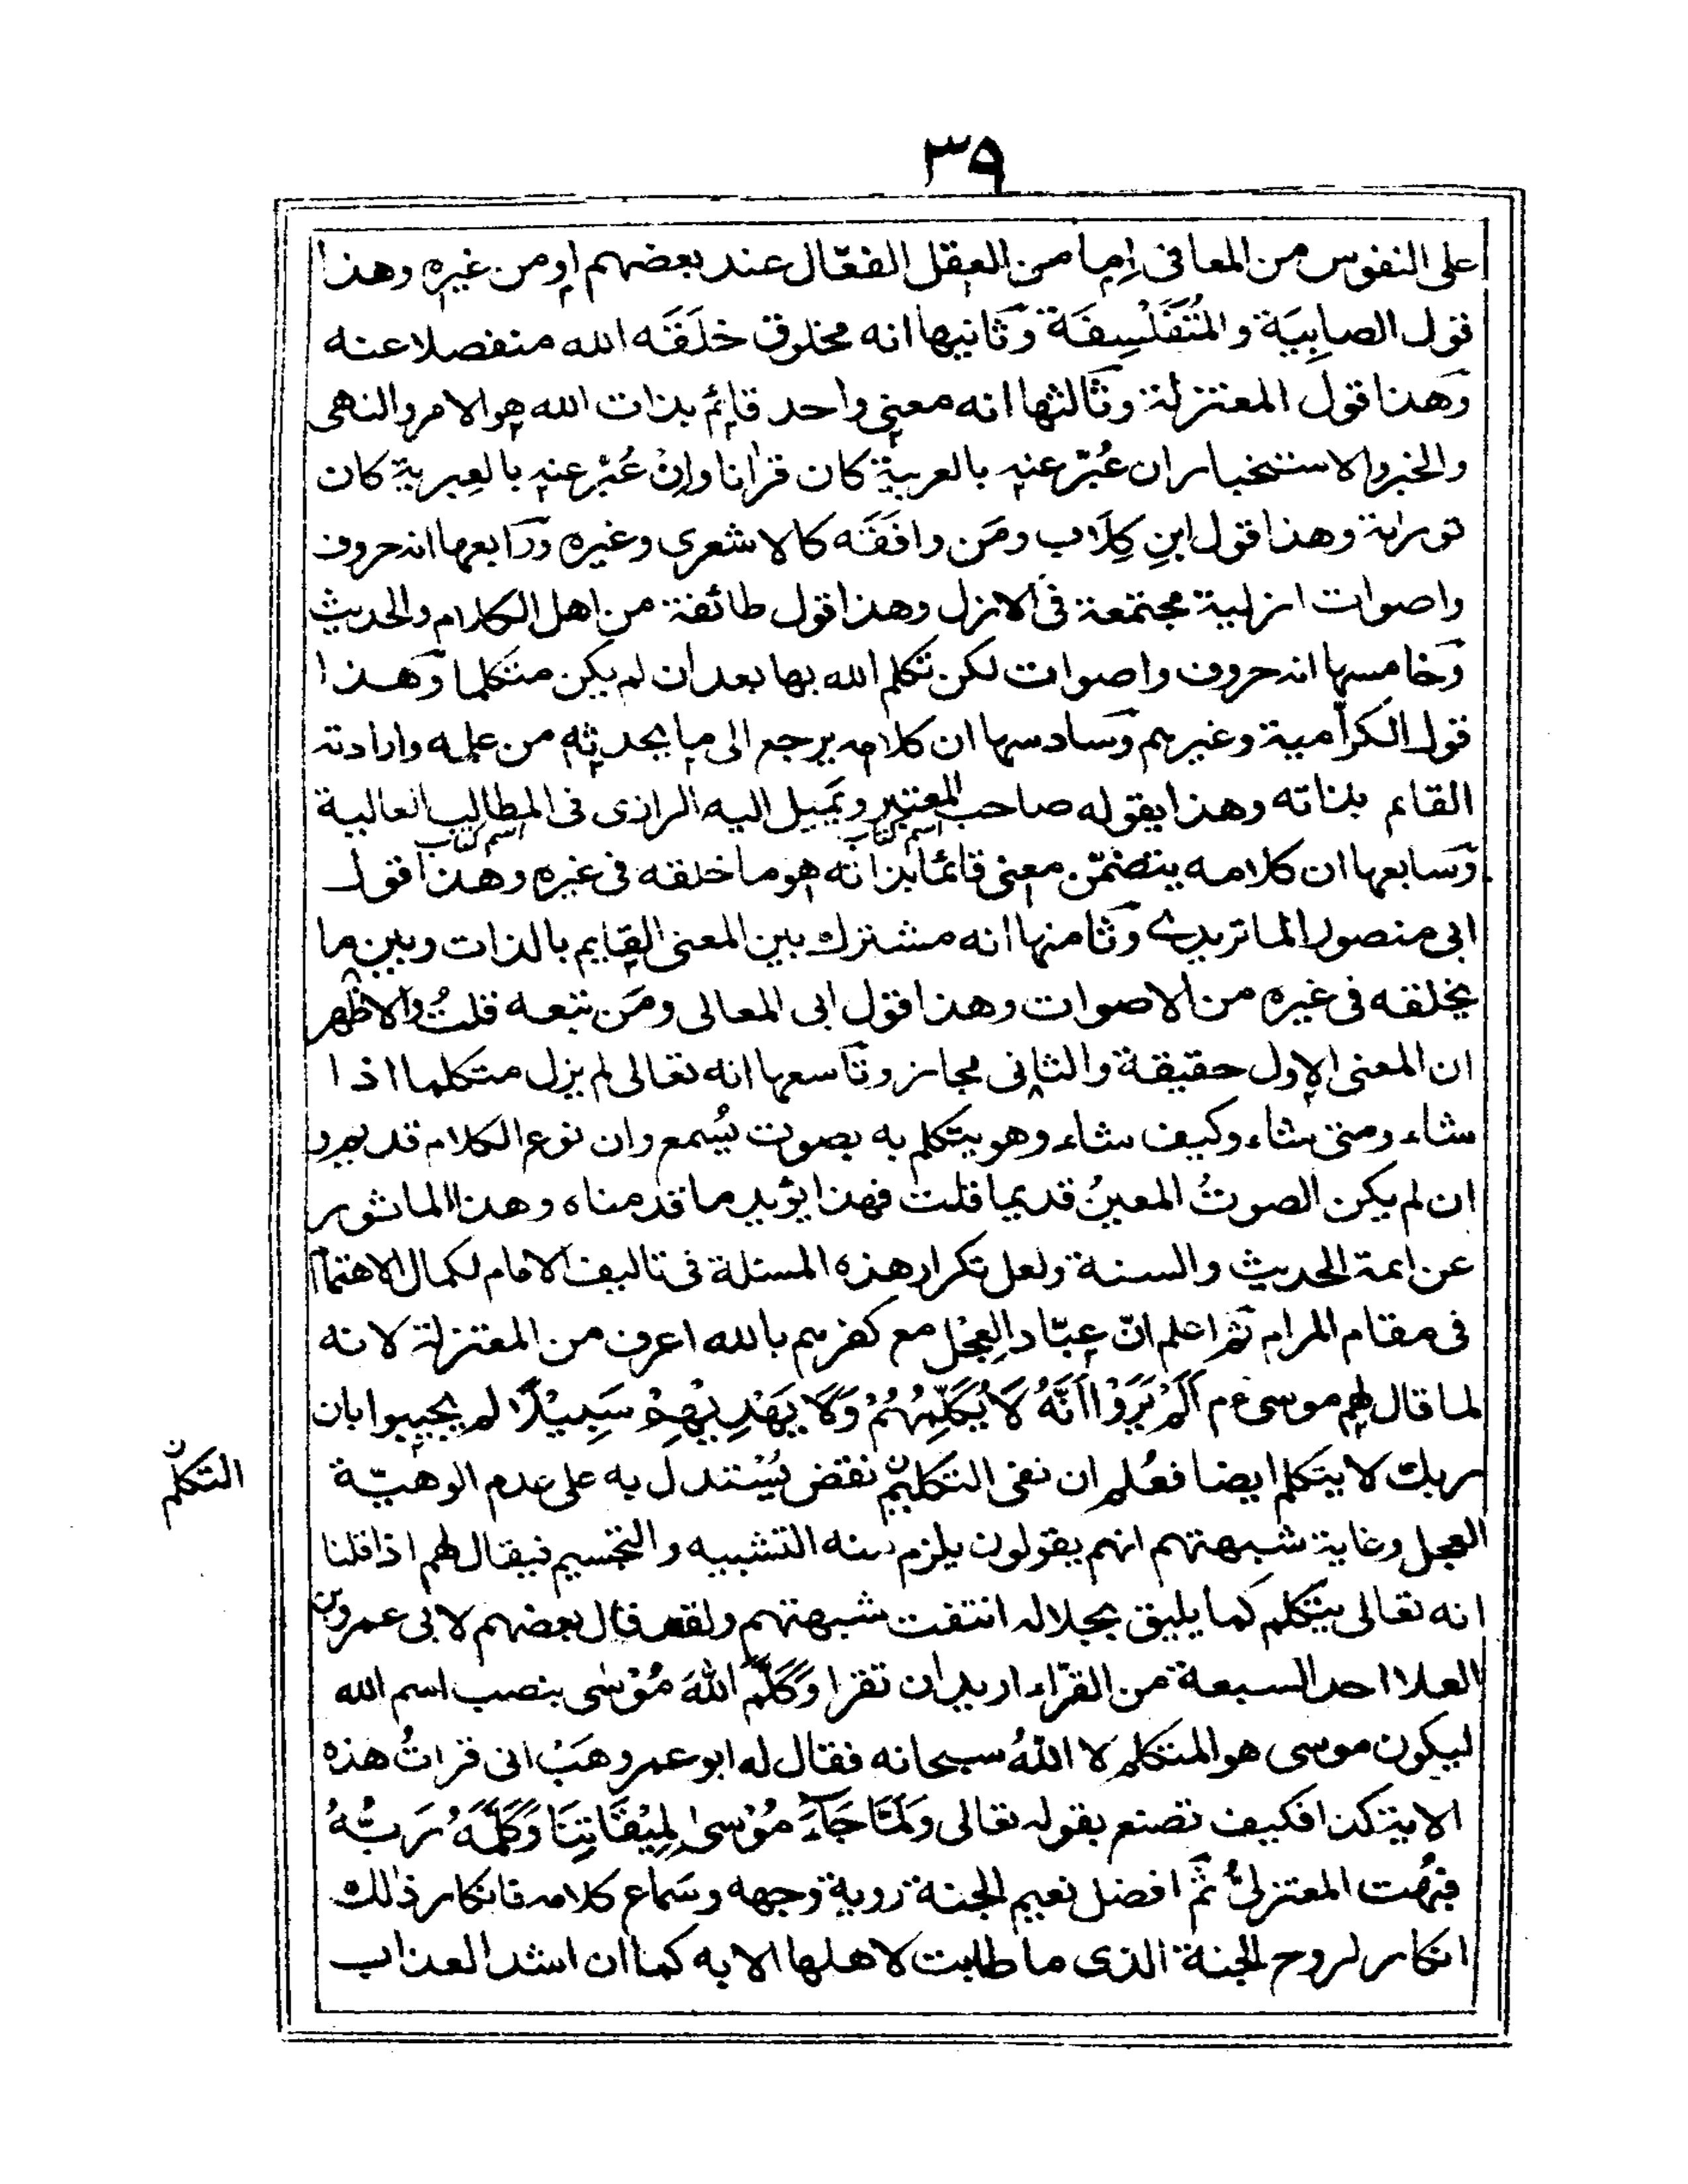 ٣٩
على النفوس من المعانى اما من العقل الفعّال عند بعضهم او من غيره وهذا
قول الصابِيَة والمُتَفَلْسِفَة وثانيها انه مخلوق خلَقَه الله منفصلا عنه
وهذا قول المعتزلة وثالثها انه معنى واحد قائم بذات الله هو الامر والنهى
والخبر والاستخبار ان عُبّر عنه بالعربية كان قرانا وانْ عُبّر عنه بالعِبرية كان
تورٰىة وهذا قول ابنِ كِلَاب ومَن وافَقَه كالاشعرى وغيره ورابعها انه حروف
واصوات ازلية مجتمعة فى الازل وهذا قول طائفة من اهل الكلام والحديث
وخامسها انه حروف واصوات لكن تكلم الله بها بعد ان لم يكن متكلما وهذا
قول الكرامية وغيرهم وسادسها ان كلامه يرجع الى ما يحدثه من علمه وارادته
القائم بذاته وهذا يقوله صاحب المعتبر ويَميل اليه الرازى فى المطالب العالية
اسم كتاب اسم كتاب
وسابعها ان كلامه يتضمّن معنى قائما بذاته هو ما خلقه فى غيره وهذا قول
ابى منصور الماتريدى وثامنها انه مشترك بين المعنى القايم بالذات وبين ما
يخلقه فى غيره من الاصوات وهذا قول ابى المعالى ومَن تبعه قلتُ والاظهر
ان المعنى الاول حقيقة والثانى مجاز وتاسعها انه تعالى لم يزل متكلما اذا
شاء ومتى شاء وكيف شاء وهو يتكلم به بصوت يُسمع وان نوع الكلام قديم و
ان لم يكن الصوتُ المعينُ قديما قلت فهذا يؤيد ما قدمناه وهذا الماثور
عن ائمة الحديث والسنة ولعل تكرار هذه المسئلة فى تاليف الامام لكمال الاهتمام
فى مقام المرام ثم اعلم انّ عبّاد العِجْل مع كفرهم بالله اعرف من المعتزلة لانه
لما قال لهم موسى ع م اَلَمْ يَرَوْا اَنَّهُ لَا يُكَلِّمُهُمْ وَلَا يَهْدِيْهِمْ سَبِيْلًا لم يجيبوا بان
ربك لا يتكلم ايضا فعُلم ان نفى التكليم نقض يُسْتدل به على عدم الوهيّة
التكلّم
العجل وغاية شبهتهم انهم يقولون يلزم منه التشبيه والتجسيم فيقال لهم اذا قلنا
انه تعالى يتكلم كما يليق بجلاله انتفت شبهتهم ولقد قال بعضهم لابى عمرو بن
العلا احد السبعة من القرّاء اريد ان تقرا وَكَلَّمَ اللهَ مُوْسٰى بنصب اسم الله
ليكون موسى هو المتكلم لا اللهُ سبحانه فقال له ابو عمرو هَبْ انى قراتُ هذه
الاية كذا فكيف تصنع بقوله تعالى وَلَمَّا جَآءَ مُوْسٰى لِمِيْقَاتِنَا وَكَلَّمَهُ رَبُّهُ
فبُهت المعتزلىُّ ثم افضل نعيم الجنة روية وجهه وسَماع كلامه فانكار ذٰلك
انكار لروح الجنة الذى ما طابت لاهلها الا به كما ان اشد العذاب